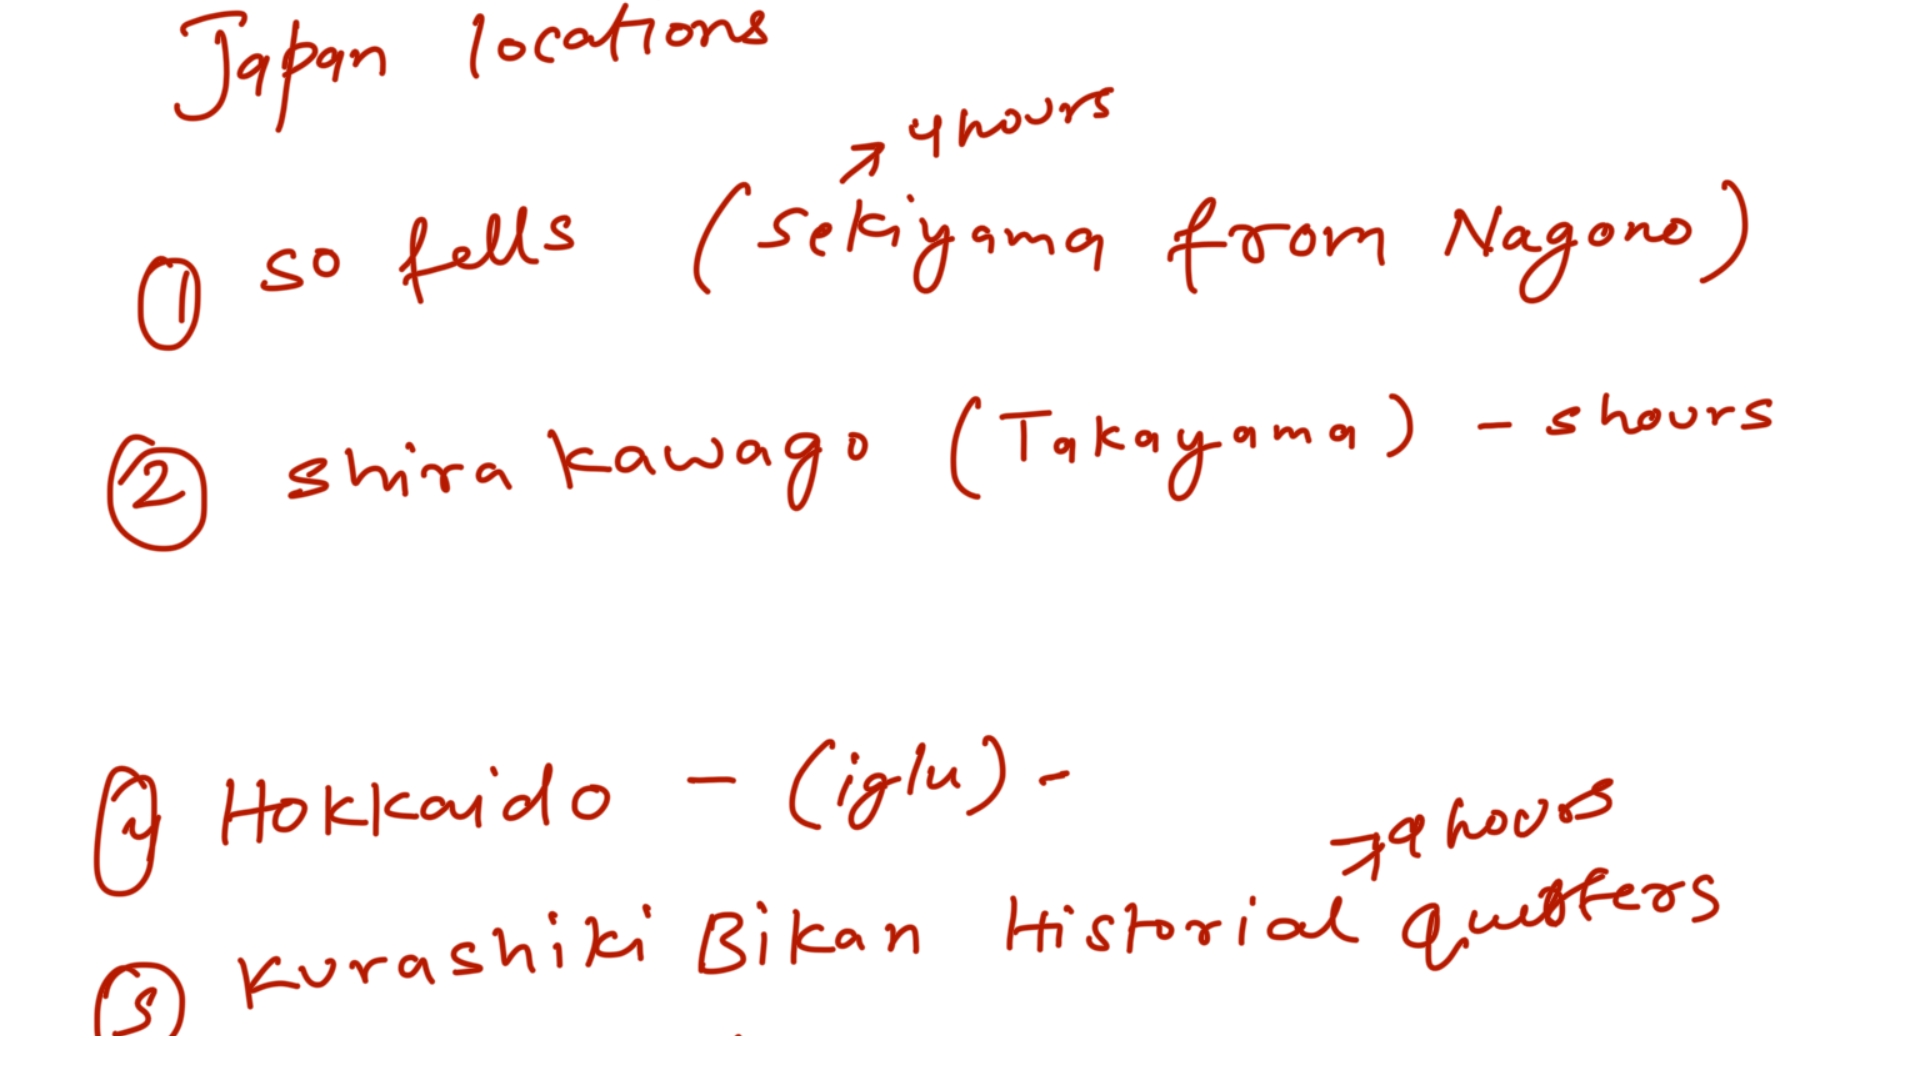 Japan locations
4 hours
① so fells (Sekiyama from Nagano)
② shira kawago (Takayama) - 5 hours
④ Hokkaido - (iglu) -
9 hours
⑤ Kurashiki Bikan Historial